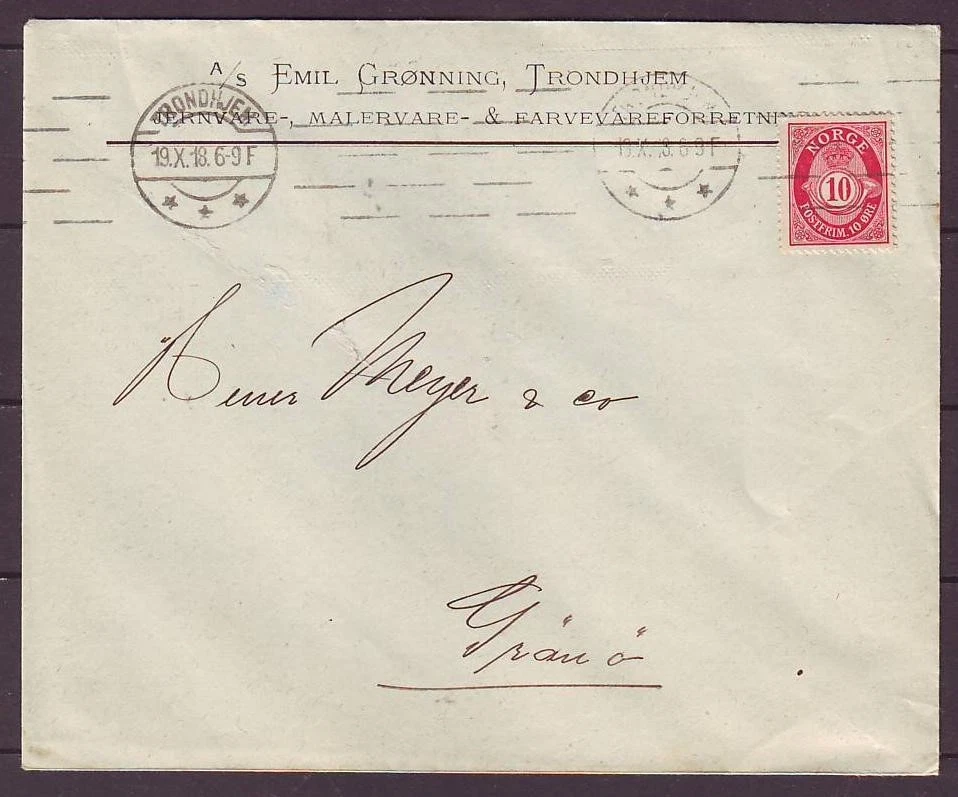 A/S EMIL GRØNNING, TRONDHJEM
JERNVARE-, MALERVARE- & FARVEVAREFORRETNI
TRONDHJEM
19.X.18.6-9 F
TRONDHJEM
19.X.18.6-9 F
NORGE
10
POSTFRIM. 10 ØRE
Meyer & co